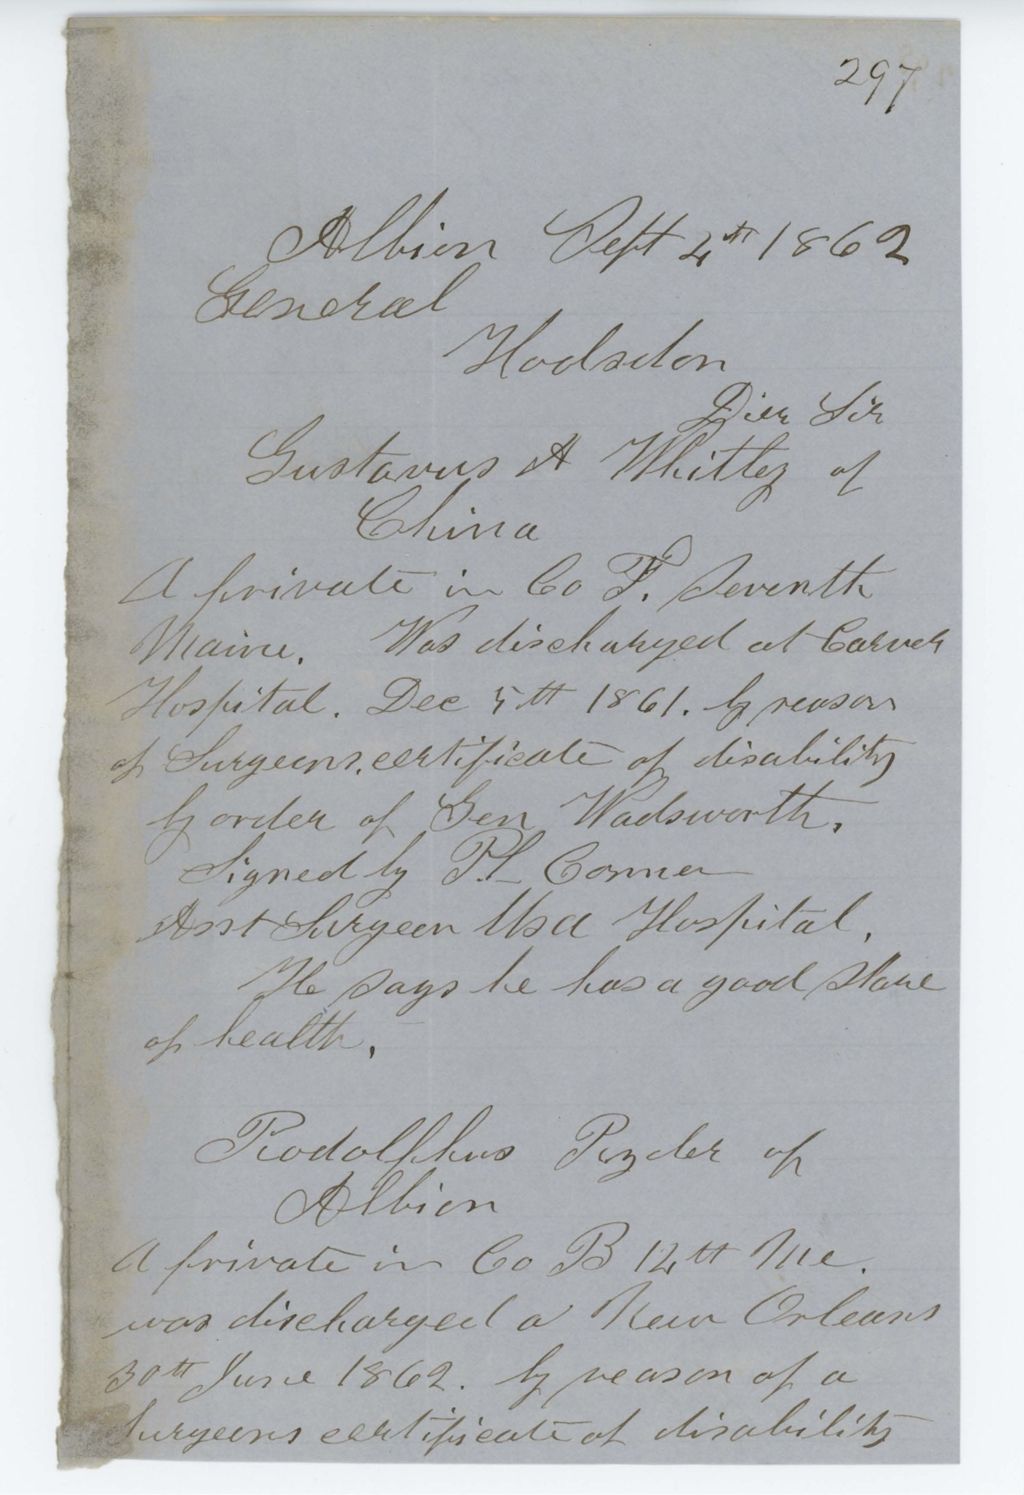 297
Albion Sept 4th 1862
General
Hodsdon
Dier Sir
Gustavus A Whitley of
China
A private in Co F. Seventh
Maine. Was discharged at Carver
Hospital. Dec 5th 1861. by reason
of Surgeons. certificate of disability
by order of Gen Wadsworth.
Signed by P.S. Conner
Asst Surgeon Usa Hospital.
He says he has a good state
of health.
Rodolphus Ryder of
Albion
A private in Co B 12th Me.
was discharged a New Orleans
30th June 1862. by reason of a
Surgeons certificate of disability